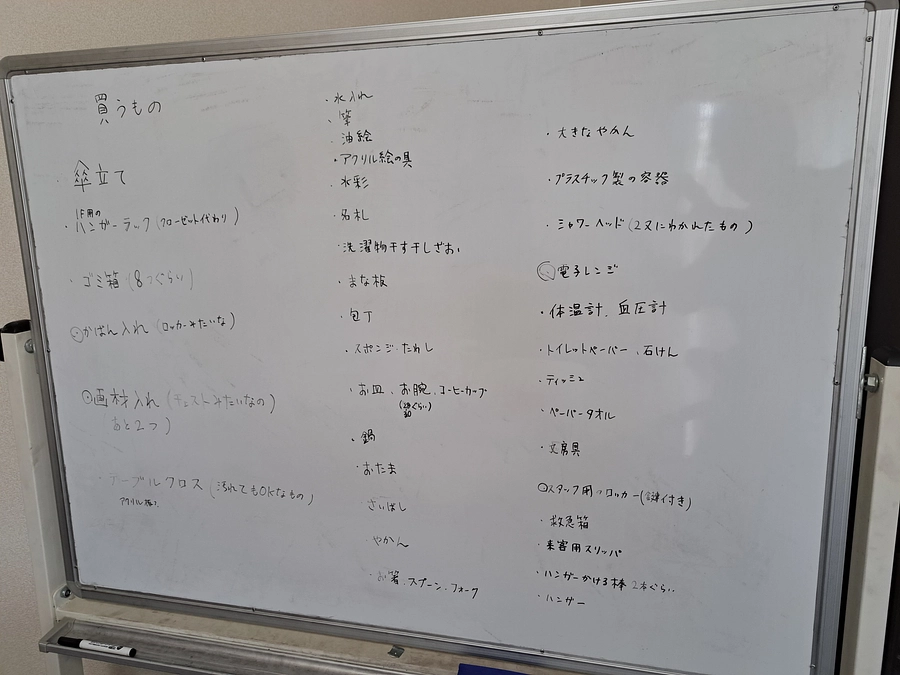 買うもの
傘立て
1F用の
・ハンガーラック(クローゼット代わり)
・ゴミ箱(8つぐらい)
○かばん入れ(ロッカーみたいな)
○画材入れ(チェストみたいなの)
あと2つ)
・テーブルクロス(汚れてもOKなもの)
アクリル板
・水入れ
・筆
・油絵
・アクリル絵の具
・水彩
・名札
・洗濯物干す干しざおい
・まな板
・包丁
・スポンジ・たわし
・お皿、お腕、コーヒーカップ
・鍋
・おたま
さいばし
・やかん
・お箸 スプーン・フォーク
・大きなやかん
・プラスチック製の容器
・シャワーヘッド(2又にわかれたもの)
○電子レンジ
・体温計、血圧計
・トイレットペーパー、石けん
・ティッシュ
・ペーパータオル
・文房具
○スタッフ用ロッカー(鍵付き)
・救急箱
・来客用スリッパ
・ハンガーかける棒 2本ぐらい
・ハンガー